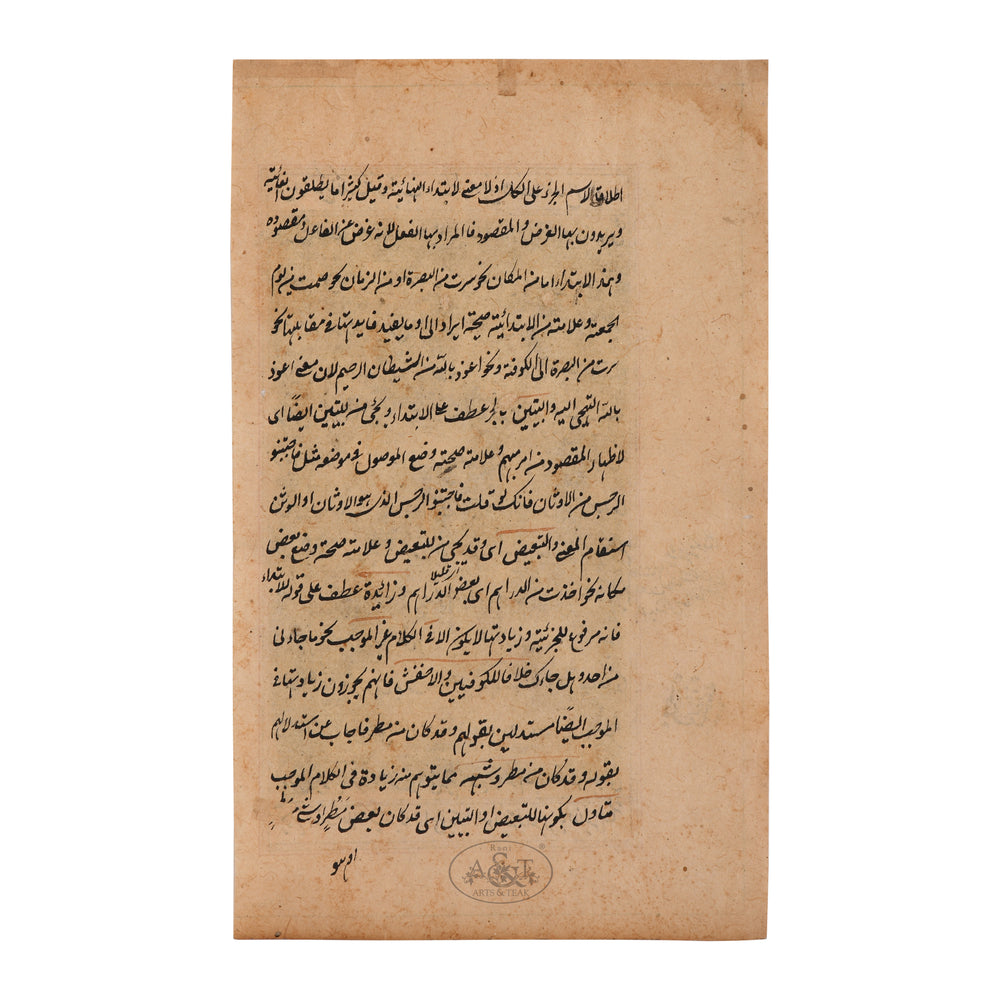 اطلاقا لاسم الجزء على الكل اذ لا معنى لابتداء النهائية وقيل كثيرا ما يطلقون الغائية
ويريدون بها الغرض والمقصود فالمراد بها الفعل لانه غرض عن الفاعل ومقصوده
وهذا الابتداء اما من المكان نحو سرت من البصرة او من الزمان نحو صمت من يوم
الجمعة وعلامته من الابتدائية صحة ايراد الى او ما يفيد فايدتها فى مقابلتها نحو
سرت من البصرة الى الكوفة ونحو اعوذ بالله من الشيطان الرجيم لان معنى اعوذ
بالله التجى اليه والتبيين بالجر عطف على الابتداء ويجئ من للتبيين ايضًا اى
لاظهار المقصود من امر مبهم وعلامته صحة وضع الموصول فى موضعه مثل فاجتنبو
الرجس من الاوثان فانك لو قلت فاجتنبو الرجس الذى هو الاوثان او الوثن
استقام المعنى والتبعيض اى وقد يجئ من للتبعيض وعلامته صحة وضع بعض
مكانه نحو اخذت من الدراهم اى بعض الدراهم وزائدة عطف على قوله للابتداء
فانه مرفوع للخبرية وزيادتها لا يكون الا فى الكلام غير الموجب نحو ما جاءنى
من احد وهل جاءك خلافا للكوفيين والاخفش فانهم يجوزون زيادتها فى
الموجب ايضًا مستدلين بقولهم وقد كان من مطر فاجاب عن استدلالهم
بقوله وقد كان من مطر وشبهه مما يتوهم منه زيادة فى الكلام الموجب
متاول بكونها للتبعيض او التبيين اى قد كان بعض مطر او شئ من مطر
او هو
Rani
A&T
ARTS & TEAK
®